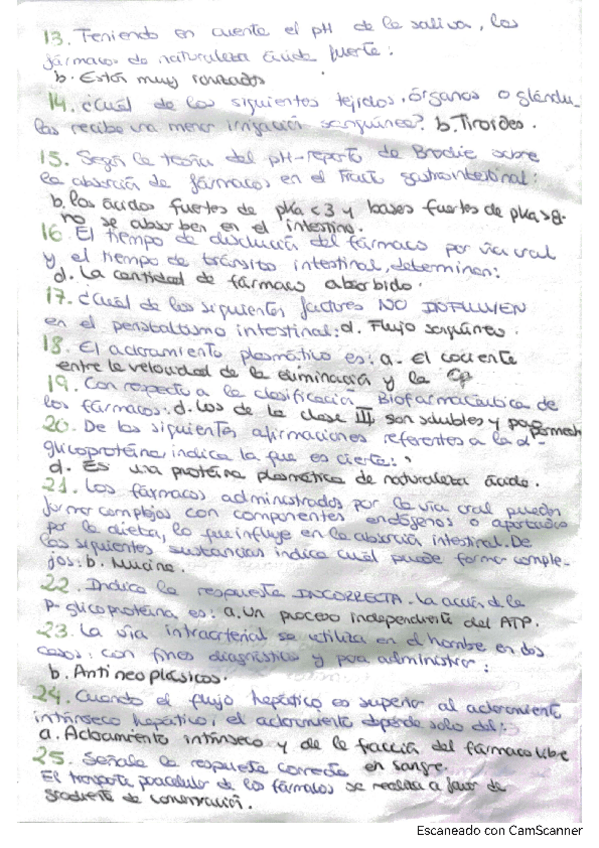 13. Teniendo en cuenta el pH de la saliva, los
fármacos de naturaleza ácida fuerte:
b. Están muy ionizados
14. ¿Cuál de los siguientes tejidos, órganos o glándu_
las recibe una menor irrigación sanguínea? b. Tiroides.
15. Según la teoría del pH-reparto de Brodie sobre
la absorción de fármacos en el Tracto gastrointestinal:
b. los ácidos fuertes de pKa<3 y bases fuertes de pKa>8.
no se absorben en el intestino.
16. El tiempo de disolución del fármaco por vía oral
y el tiempo de tránsito intestinal, determinan:
d. La cantidad de fármaco absorbido.
17. ¿Cuál de los siguientes factores NO INFLUYEN
en el peristaltismo intestinal: d. Flujo sanguíneo.
18. El aclaramiento plasmático es: a. El cociente
entre la velocidad de la eliminación y la Cp
19. Con respecto a la clasificación Biofarmacéutica de
los fármacos: d. Los de la clase III son solubles y poco permeab
20. De las siguientes afirmaciones referentes a la α-
glicoproteína indica la que es cierta:
d. Es una proteína plasmática de naturaleza ácida.
21. Los fármacos administrados por la vía oral pueden
formar complejos con componentes endógenos o aportados
por la dieta, lo que influye en la absorción intestinal. De
las siguientes sustancias indica cuál puede formar comple-
jos: b. Mucina.
22. Indica la respuesta INCORRECTA. La acción de la
P-glicoproteína es: a. Un proceso independiente del ATP.
23. La vía intraarterial se utiliza en el hombre en dos
casos: con fines diagnóstico y para administrar:
b. Antineoplásicos.
24. Cuando el flujo hepático es superior al aclaramiento
intrínseco hepático, el aclaramiento depende solo del:
a. Aclaramiento intrínseco y de la fracción del fármaco libre
en sangre.
25. Señala la respuesta correcta
El transporte paracelular de los fármacos se realiza a favor de
gradiente de concentración.
Escaneado con CamScanner